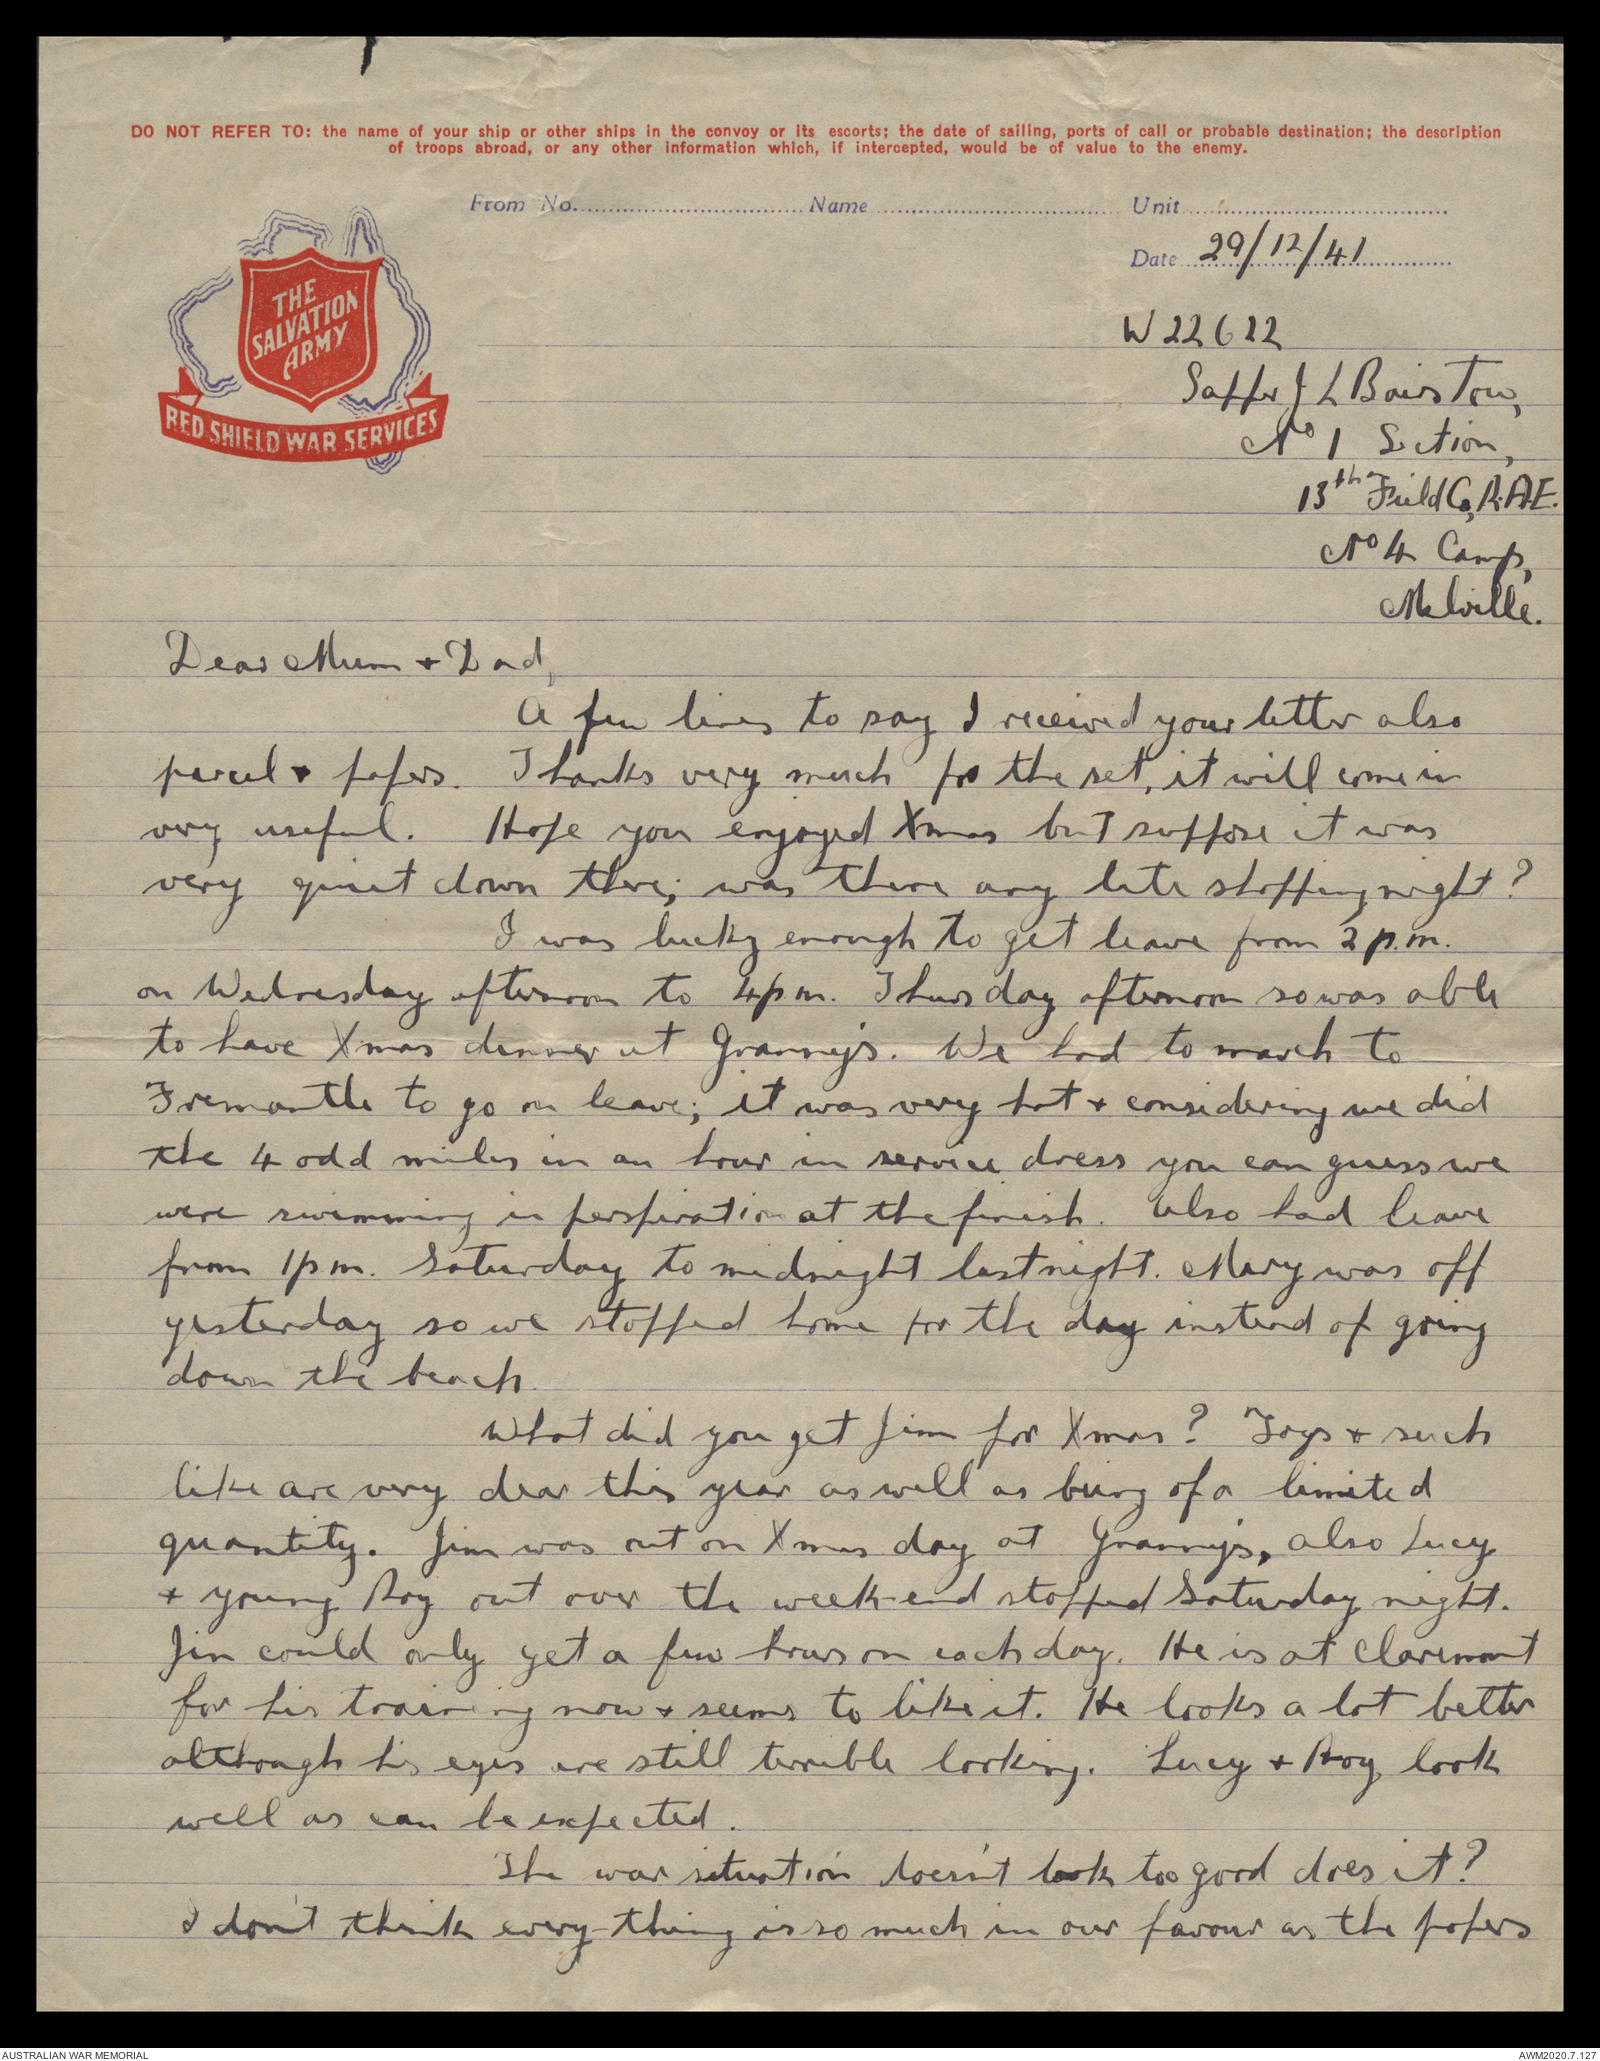 DO NOT REFER TO: the name of your ship or other ships in the convoy or its escorts; the date of sailing, ports of call or probable destination; the description
of troops abroad, or any other information which, if intercepted, would be of value to the enemy.
From No. Name Unit
Date 29/12/41
THE
SALVATION
ARMY
RED SHIELD WAR SERVICES
W22622
Sapper J L Bairstow,
No 1 Section,
13th Field Co, R.A.E.
No 4 Camp,
Melville.
Dear Mum + Dad,
A few lines to say I received your letter also
parcel + papers. Thanks very much for the set, it will come in
very useful. Hope you enjoyed Xmas but suppose it was
very quiet down there; was there any late shopping night?
I was lucky enough to get leave from 2 p.m.
on Wednesday afternoon to 4 pm. Thursday afternoon so was able
to have Xmas dinner at Granny's. We had to march to
Fremantle to go on leave; it was very hot + considering we did
the 4 odd miles in an hour in service dress you can guess we
were swimming in perspiration at the finish. Also had leave
from 1 pm. Saturday to midnight last night. Mary was off
yesterday so we stopped home for the day instead of going
down the beach.
What did you get Jim for Xmas? Toys + such
like are very dear this year as well as being of a limited
quantity. Jim was out on Xmas day at Granny's, also Lucy
+ young Roy out over the week-end stopped Saturday night.
Jim could only get a few hours on each day. He is at Claremont
for his training now + seems to like it. He looks a lot better
although his eyes are still terrible looking. Lucy + Roy look
well as can be expected.
The war situation doesn't look too good does it?
I don't think every-thing is so much in our favour as the papers
AUSTRALIAN WAR MEMORIAL
AWM2020.7.127